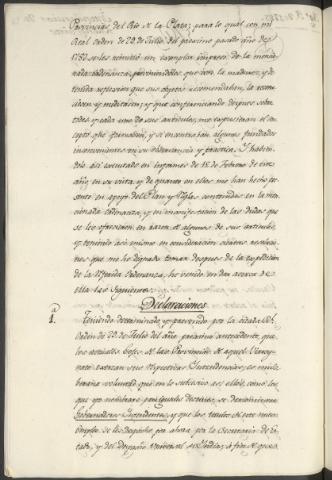 Provincias del Rio de la Plata; para lo qual con mi
Real orden de 29 de Julio del proximo pasado año de
1782 se les remitió un exemplar impreso de la mencio-
nada ordenanza, previniendoles que con la madurez, y de-
tenida reflexion que sus objetos recomendaban, la reco-
nociesen y meditasen; y que conferenciando despues sobre
todos y cada uno de sus articulos, me expusiesen el con-
cepto que formasen, y si encontraban algunos fundados
inconvenientes en su observancia y practica. Y habien-
dolo asi executado en informes de 15 de Febrero de este
año, en su vista, y de quanto en ellos me han hecho pre-
sente en apoyo del Plan y Reglas contenidas en la men-
cionada ordenanza, y en manifestacion de las dudas que
se les ofrecieron en razon de algunos de sus articulos,
y teniendo asi mismo en consideracion otras resolucio-
nes que me he dignado tomar despues de la expedicion
de la referida ordenanza, he venido en dar acerca de
ella las siguientes
Declaraciones
1.ª Teniendo determinado, y prevenido por la citada Rl.
orden de 29 de Julio del año proximo antecedente, que
los actuales Gefes de las Provincias de aquel Virrey-
nato exerzan sus respectivas Intendencias; es mi de-
liberada voluntad que en lo sucesivo asi ellos, como los
que yo nombrare para iguales destinos, se denominen
Gobernadores Intendentes, y que los titulos de este nuevo
empleo se les despachen por ahora por la Secretaria de Es-
tado, y del Despacho Universal de Indias, á fin de que